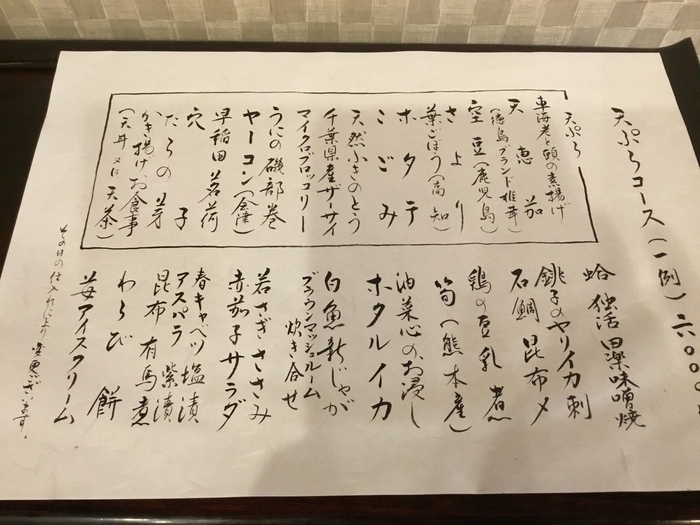 天ぷらコース(一例)六〇〇〇
天ぷら
車海老と頭の素揚げ
天恵茄
(徳島ブランド椎茸)
空豆(鹿児島)
さより
葉ごぼう(高知)
ホタテ
こごみ
天然ふきのとう
千葉県産ザーサイ
マイクロブロッコリー
うにの磯部巻
ヤーコン(会津)
早稲田茗荷
穴子
たらの芽
かき揚げお食事
(天丼又は天茶)
蛤 独活 田楽味噌焼
銚子のヤリイカ刺
石鯛 昆布〆
鶏の豆乳煮
筍(熊本産)
油菜心のお浸し
ホタルイカ
白魚新じゃが
ブラウンマッシュルーム
炊き合せ
若さぎささみ
赤茄子サラダ
春キャベツ塩漬
アスパラ紫漬
昆布有馬煮
わらび餅
苺アイスクリーム
その日の仕入れにより変更ございます。